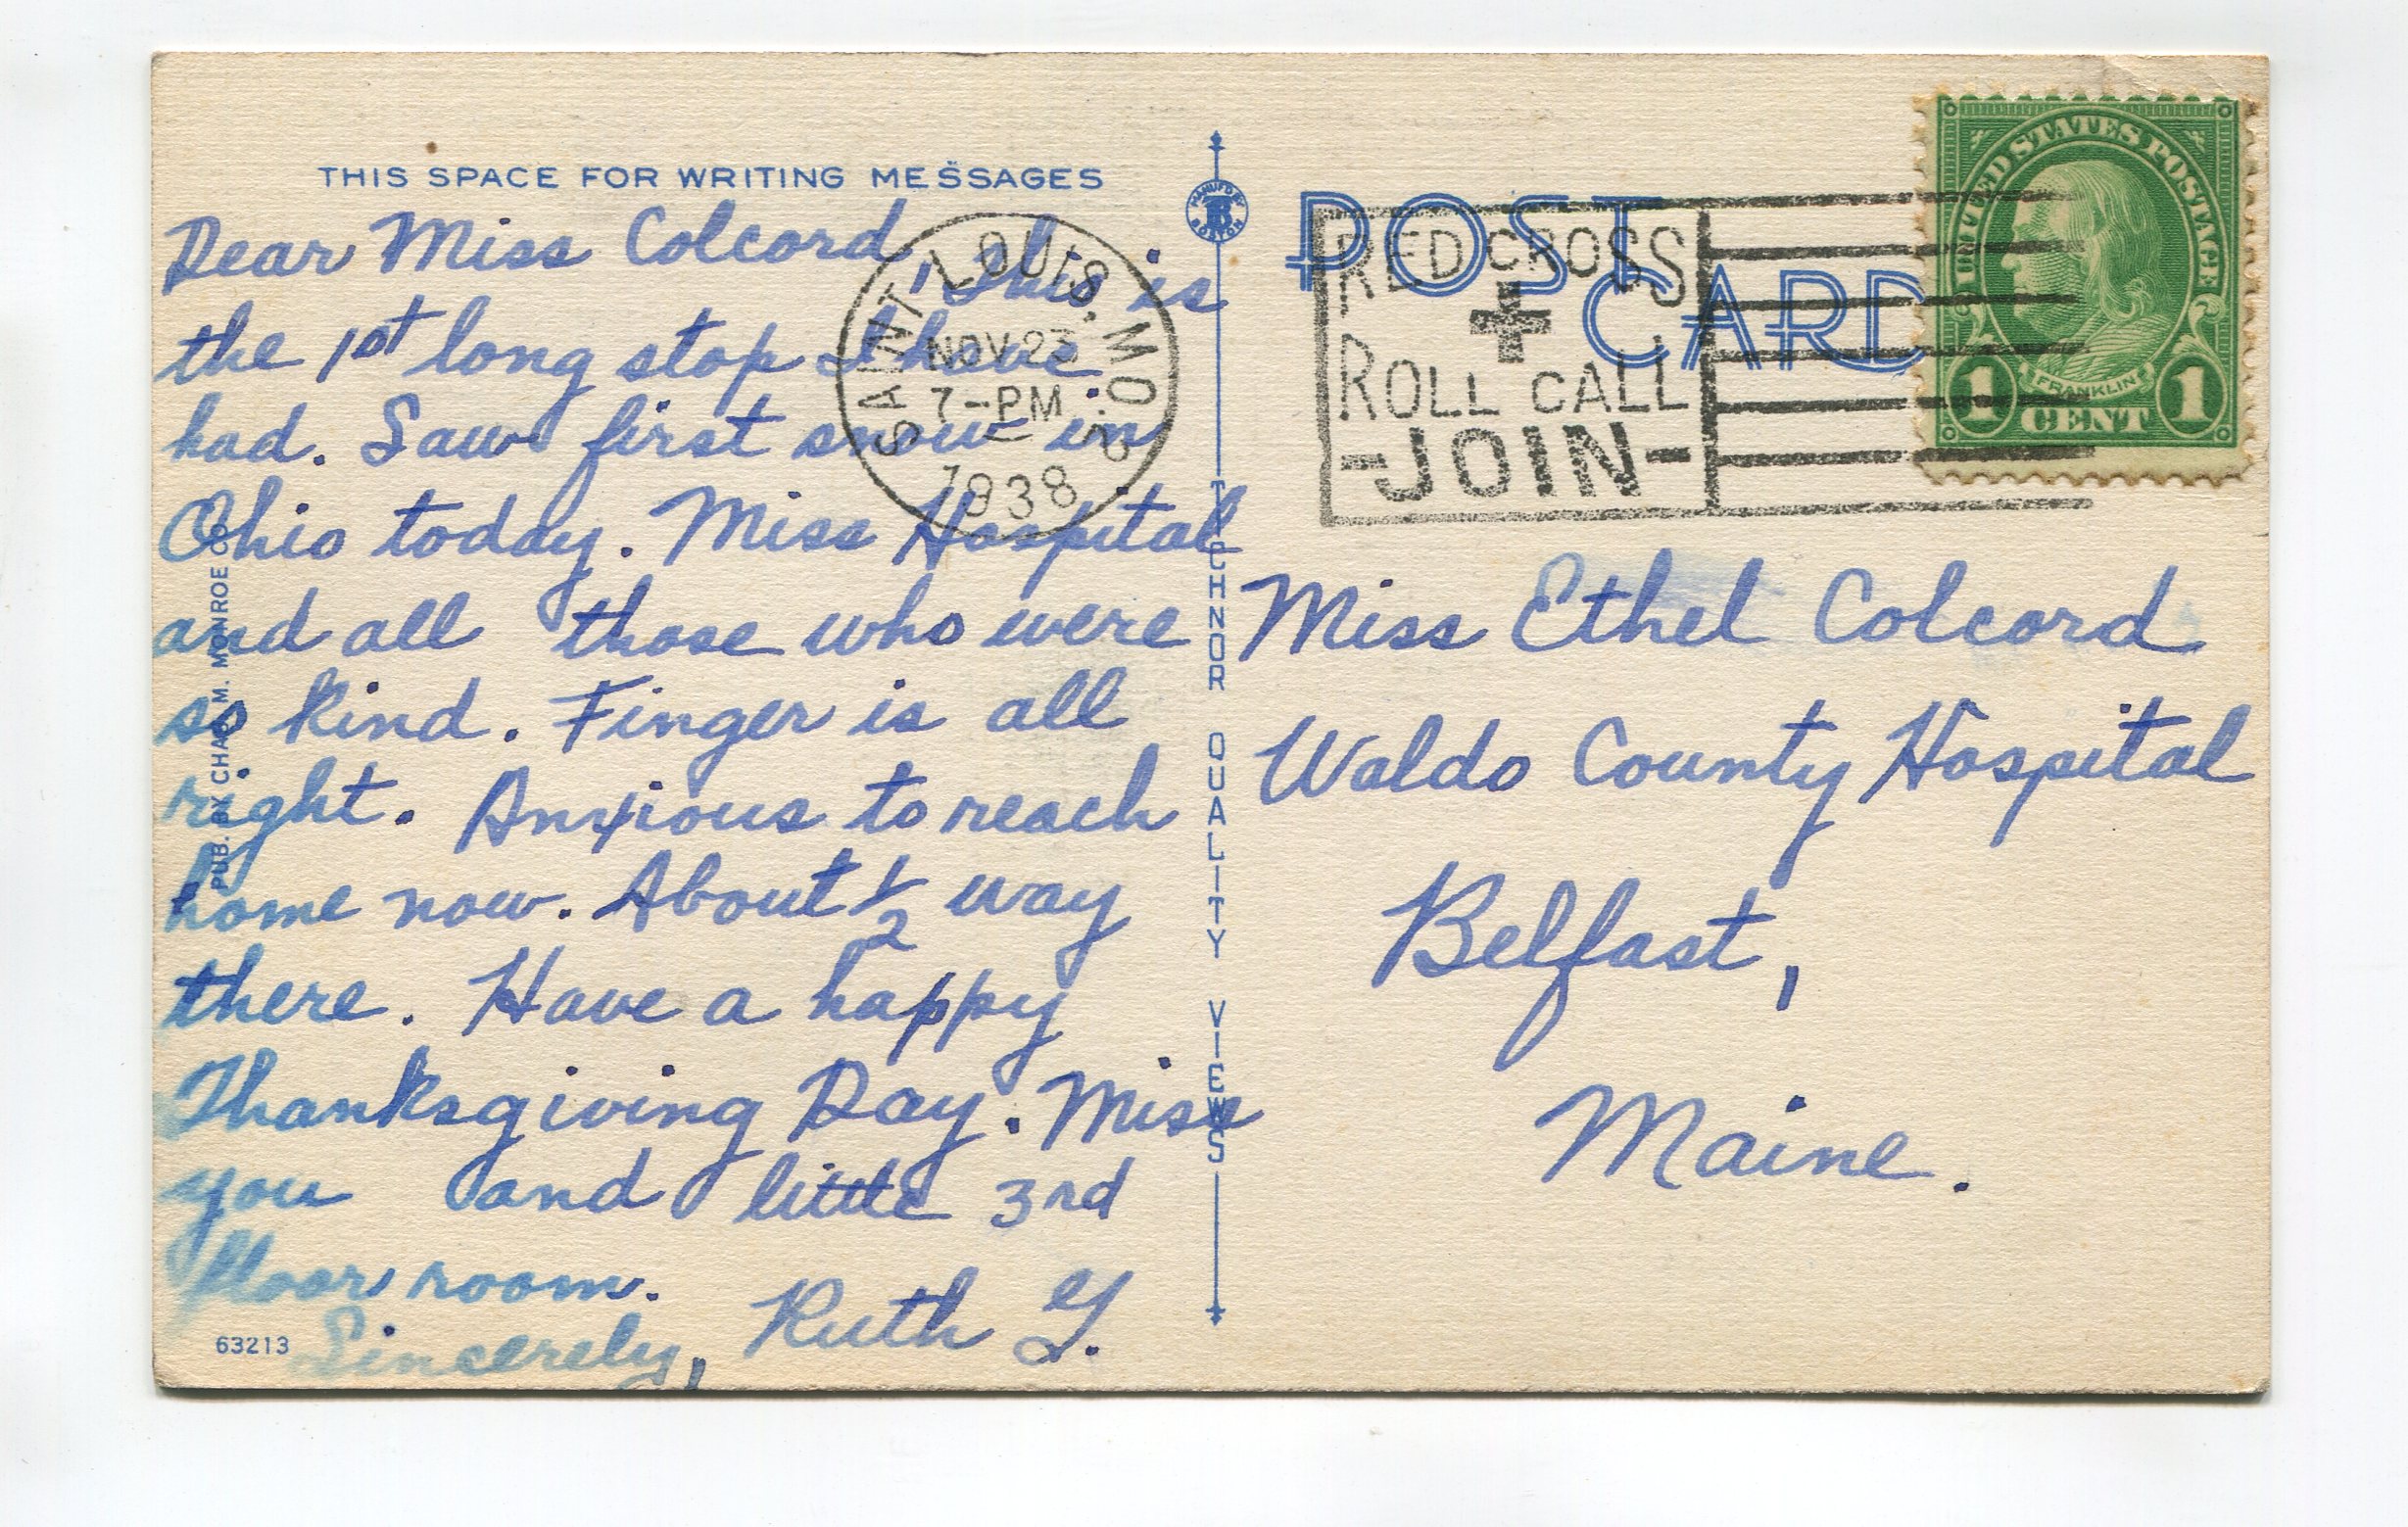 THIS SPACE FOR WRITING MESSAGES
Dear Miss Colcord, This is
the 1st long stop I have
had. Saw first snow in
Ohio today. Miss Hospital
and all those who were
so kind. Finger is all
right. Anxious to reach
home now. About 1/2 way
there. Have a happy
Thanksgiving Day. Miss
you and little 3rd
floor room.
Sincerely, Ruth Y.
63213
PUB. BY CHAS. M. MONROE CO.
SAINT LOUIS, MO.
NOV 23
7-PM
1938
MANUFD BY
BOSTON
TECHNOR QUALITY VIEWS
POST
CARD
RED CROSS
ROLL CALL
-JOIN-
UNITED STATES POSTAGE
FRANKLIN
1 CENT 1
Miss Ethel Colcord
Waldo County Hospital
Belfast,
Maine.